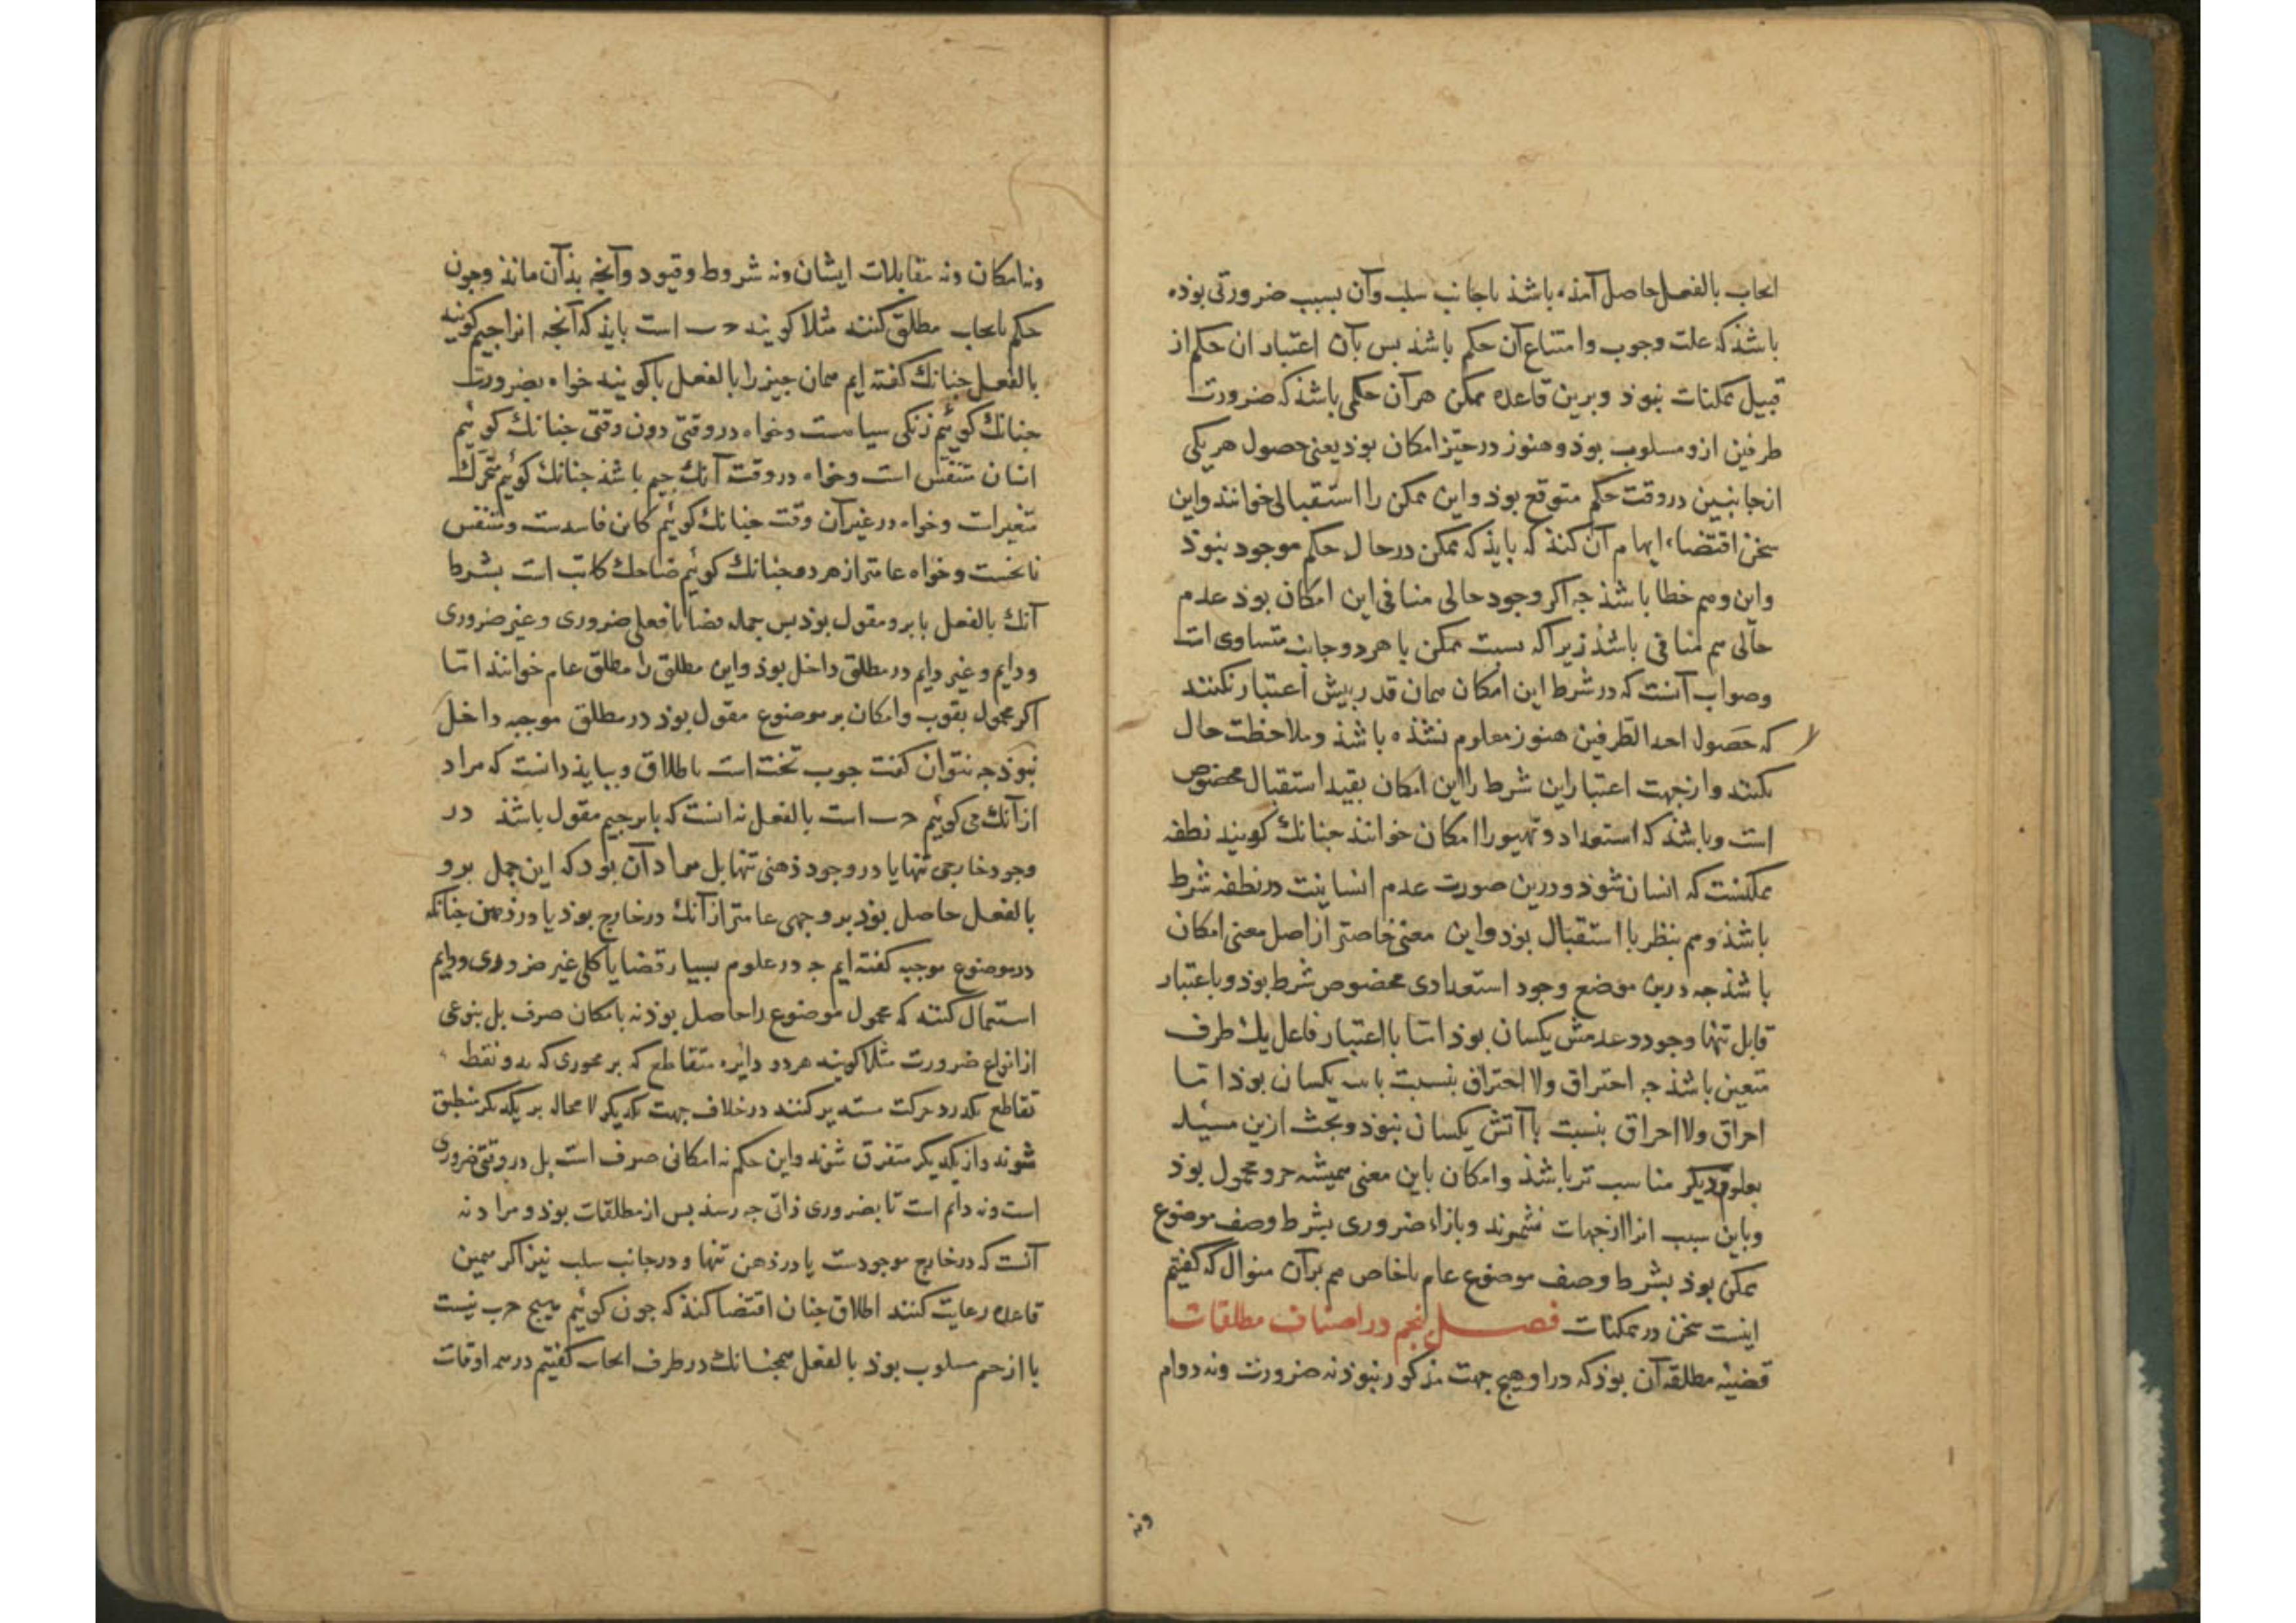 ایجاب بالفعل حاصل آمذه باشذ یا جانب سلب وآن بسبب ضرورتی بوذه
باشذ که علت وجوب وامتناع آن حکم باشذ بس بآن اعتبار ان حکم از
قبیل ممکنات نبوذ وبرین قاعده ممکن هر آن حکمی باشذ که ضرورت
طرفین ازو مسلوب بوذ وهنوز در حیز امکان بوذ یعنی حصول هر یکی
از جانبین در وقت حکم متوقع بوذ واین ممکن را استقبالی خوانند واین
سخن اقتضاء ایهام آن کند که بایذ که ممکن در حال حکم موجود نبوذ
واین وهم خطا باشذ جه اکر وجود حالی منافی این امکان بوذ عدم
حالی هم منافی باشذ زیرا که نسبت ممکن با هر دو جانب متساوی است
وصواب آنست که در شرط این امکان همان قدر بیش اعتبار نکنند
که حصول احد الطرفین هنوز معلوم نشذه باشذ وملاحظت حال
نکنند وازجهت اعتبار این شرط را این امکان بقید استقبال مخصوص
است وباشذ که استعداد وتهیو را امکان خوانند جنانك کویند نطفه
ممکنست که انسان شوذ ودرین صورت عدم انسانیت در نطفه شرط
باشذ وهم بنظر با استقبال بوذ واین معنی خاصتر از اصل معنی امکان
باشذ جه درین موضع وجود استعدادی مخصوص شرط بوذ وباعتبار
قابل تنها وجود وعدمش یکسان بوذ اما با اعتبار فاعل یك طرف
متعین باشذ جه احتراق ولا احتراق بنسبت با یکسان بوذ اما
احراق ولا احراق بنسبت با آتش یکسان نبوذ وبحث ازین مسئله
بعلوم دیکر مناسب تر باشذ وامکان باین معنی همیشه جزو محمول بوذ
وباین سبب انرا از جهات نشمرند وبازاء ضروری بشرط وصف موضوع
ممکن بوذ بشرط وصف موضوع عام یا خاص هم بر آن منوال که کفتیم
اینست سخن در ممکنات فصل پنجم در اصناف مطلقات
قضیه مطلقه آن بوذ که در او هیج جهت مذکور نبوذ نه ضرورت ونه دوام
ونه
ونه امکان ونه مقابلات ایشان ونه شروط وقیود وآنجه بذان ماند وجون
حکم بایجاب مطلق کنند مثلا کویند ج ب است بایذ که آنجه انرا جیم کویند
بالفعل جنانك کفته ایم همان جیز را بالفعل با کویند خواه بضرورت
جنانك کوئیم زنکی سیاهست وخواه در وقتی دون وقتی جنانك کوئیم
انسان متنفس است وخواه در وقت آنك جیم باشذ جنانك کوئیم متحرك
متغیر است وخواه در غیر آن وقت جنانك کوئیم کاین فاسدست ومتنفس
وخواه عامتر از هر دو جنانك کوئیم ضاحك کاتب است بشرط
آنك بالفعل با برو مقول بوذ بس جمله قضایا فعلی ضروری وغیر ضروری
ودایم وغیر دایم در مطلق داخل بوذ واین مطلق را مطلق عام خوانند اما
اکر محمول بقوت وامکان بر موضوع مقول بوذ در مطلق موجبه داخل
نبوذ جه نتوان کفت جوب تخت است باطلاق وببایذ دانست که مراد
از آنك می کوئیم ج ب است بالفعل نه انست که با بر جیم مقول باشذ در
وجود خارجی تنها یا در وجود ذهنی تنها بل مراد آن بوذ که این حمل برو
بالفعل حاصل بوذ بر وجهی عامتر از آنك در خارج بوذ یا در ذهن جنانکه
در موضوع موجبه کفته ایم جه در علوم بسیار قضایا کلی غیر ضروری ودایم
استعمال کنند که محمول موضوع را حاصل بوذ نه بامکان صرف بل بنوعی
از انواع ضرورت مثلا کویند هر دو دایره متقاطع که بر محوری که بدو نقطه
تقاطع بکذرد حرکت مستدیر کنند در خلاف جهت یکدیکر لا محاله بر یکدیکر منطبق
شوند واز یکدیکر متفرق شوند واین حکم نه امکانی صرف است بل در وقتی ضروری
است ونه دایم است تا بضروری ذاتی جه رسذ بس از مطلقات بوذ ومراد نه
آنست که در خارج موجودست یا در ذهن تنها ودر جانب سلب نیز اکر همین
قاعده رعایت کنند اطلاق جنان اقتضا کند که جون کوئیم هیج ج ب نیست
با از جیم مسلوب بوذ بالفعل همجنانك در طرف ایجاب کفتیم در همه اوقات